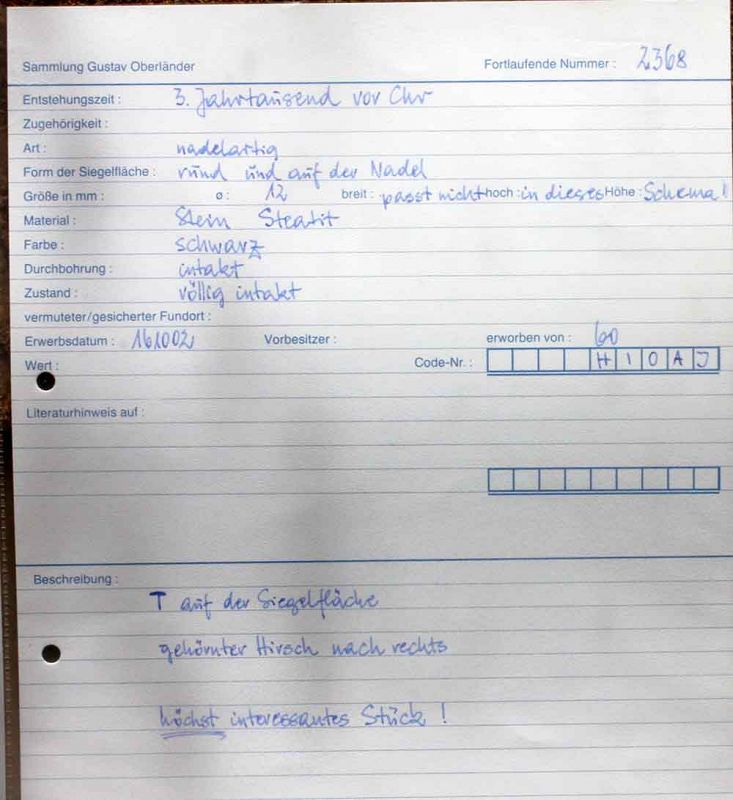 Sammlung Gustav Oberländer Fortlaufende Nummer : 2368
Entstehungszeit : 3. Jahrtausend vor Chr
Zugehörigkeit :
Art : nadelartig
Form der Siegelfläche : rund und auf der Nadel
Größe in mm : ø : 12 breit : passt nicht hoch : in dieses Höhe : Schema !
Material : Stein Steatit
Farbe : schwarz
Durchbohrung : intakt
Zustand : völlig intakt
vermuteter/gesicherter Fundort :
Erwerbsdatum : 161002 Vorbesitzer : erworben von : 60
Wert : Code-Nr. : H I 0 A J
Literaturhinweis auf :
Beschreibung :
T auf der Siegelfläche
gehörnter Hirsch nach rechts
höchst interessantes Stück !